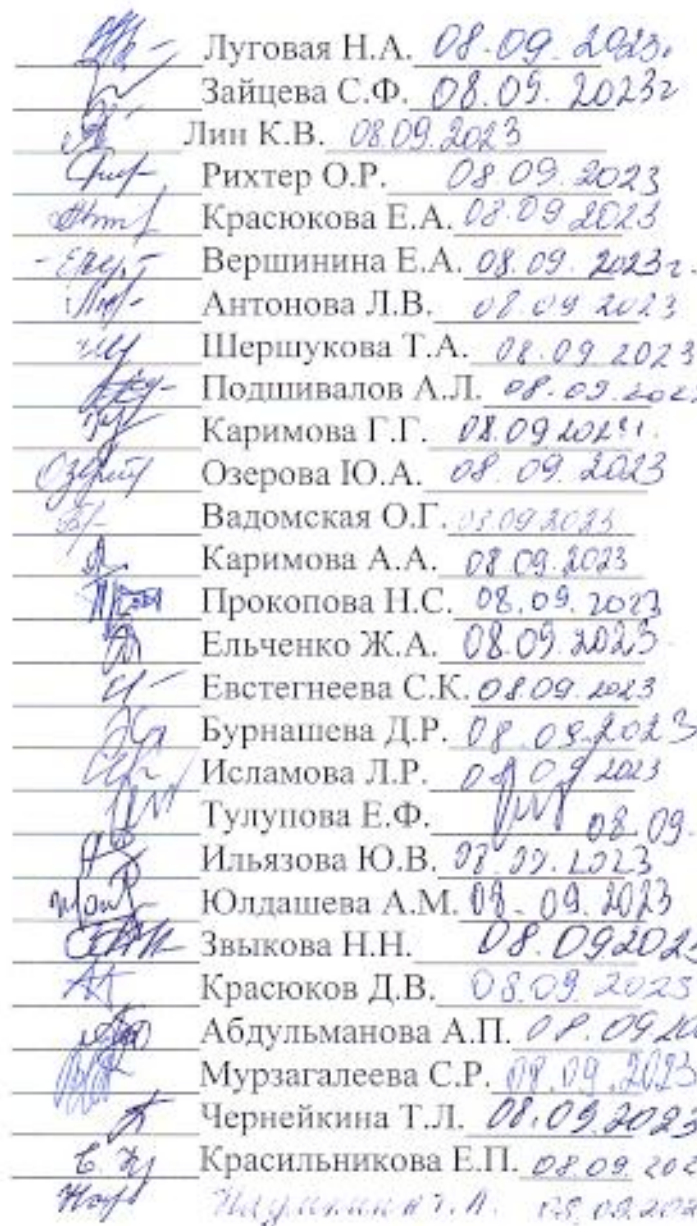 Луговая Н.А. 08.09.2023г
Зайцева С.Ф. 08.09.2023г
Лин К.В. 08.09.2023
Рихтер О.Р. 08.09.2023
Красюкова Е.А. 08.09.2023
Вершинина Е.А. 08.09.2023г.
Антонова Л.В. 08.09.2023
Шершукова Т.А. 08.09.2023
Подшивалов А.Л. 08.09.202
Каримова Г.Г. 08.09.202
Озерова Ю.А. 08.09.2023
Вадомская О.Г. 08.09.2023
Каримова А.А. 08.09.2023
Прокопова Н.С. 08.09.2023
Ельченко Ж.А. 08.09.2023
Евстегнеева С.К. 08.09.2023
Бурнашева Д.Р. 08.09.2023
Исламова Л.Р. 08.09.2023
Тулупова Е.Ф. 08.09.
Ильязова Ю.В. 08.09.2023
Юлдашева А.М. 08.09.2023
Звыкова Н.Н. 08.092023
Красюков Д.В. 08.09.2023
Абдульманова А.П. 08.09.20
Мурзагалеева С.Р. 08.09.2023
Чернейкина Т.Л. 08.09.2023
Красильникова Е.П. 08.09.202
08.09.202